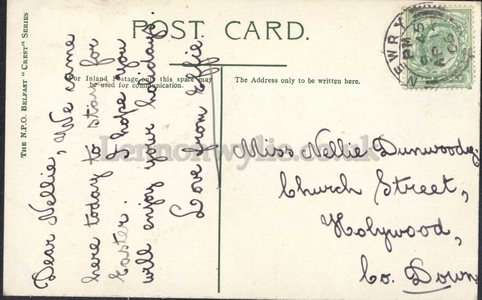 POST CARD.
THE N.P.O. BELFAST "CREST" SERIES
For Inland Postage only this space may
be used for communication.
The Address only to be written here.
NEWRY
Dear Nellie, We came
here today to stay for
Easter. I hope you
will enjoy your holidays.
Love from Effie
Miss Nellie Dunwoody,
Church Street,
Holywood,
Co. Down